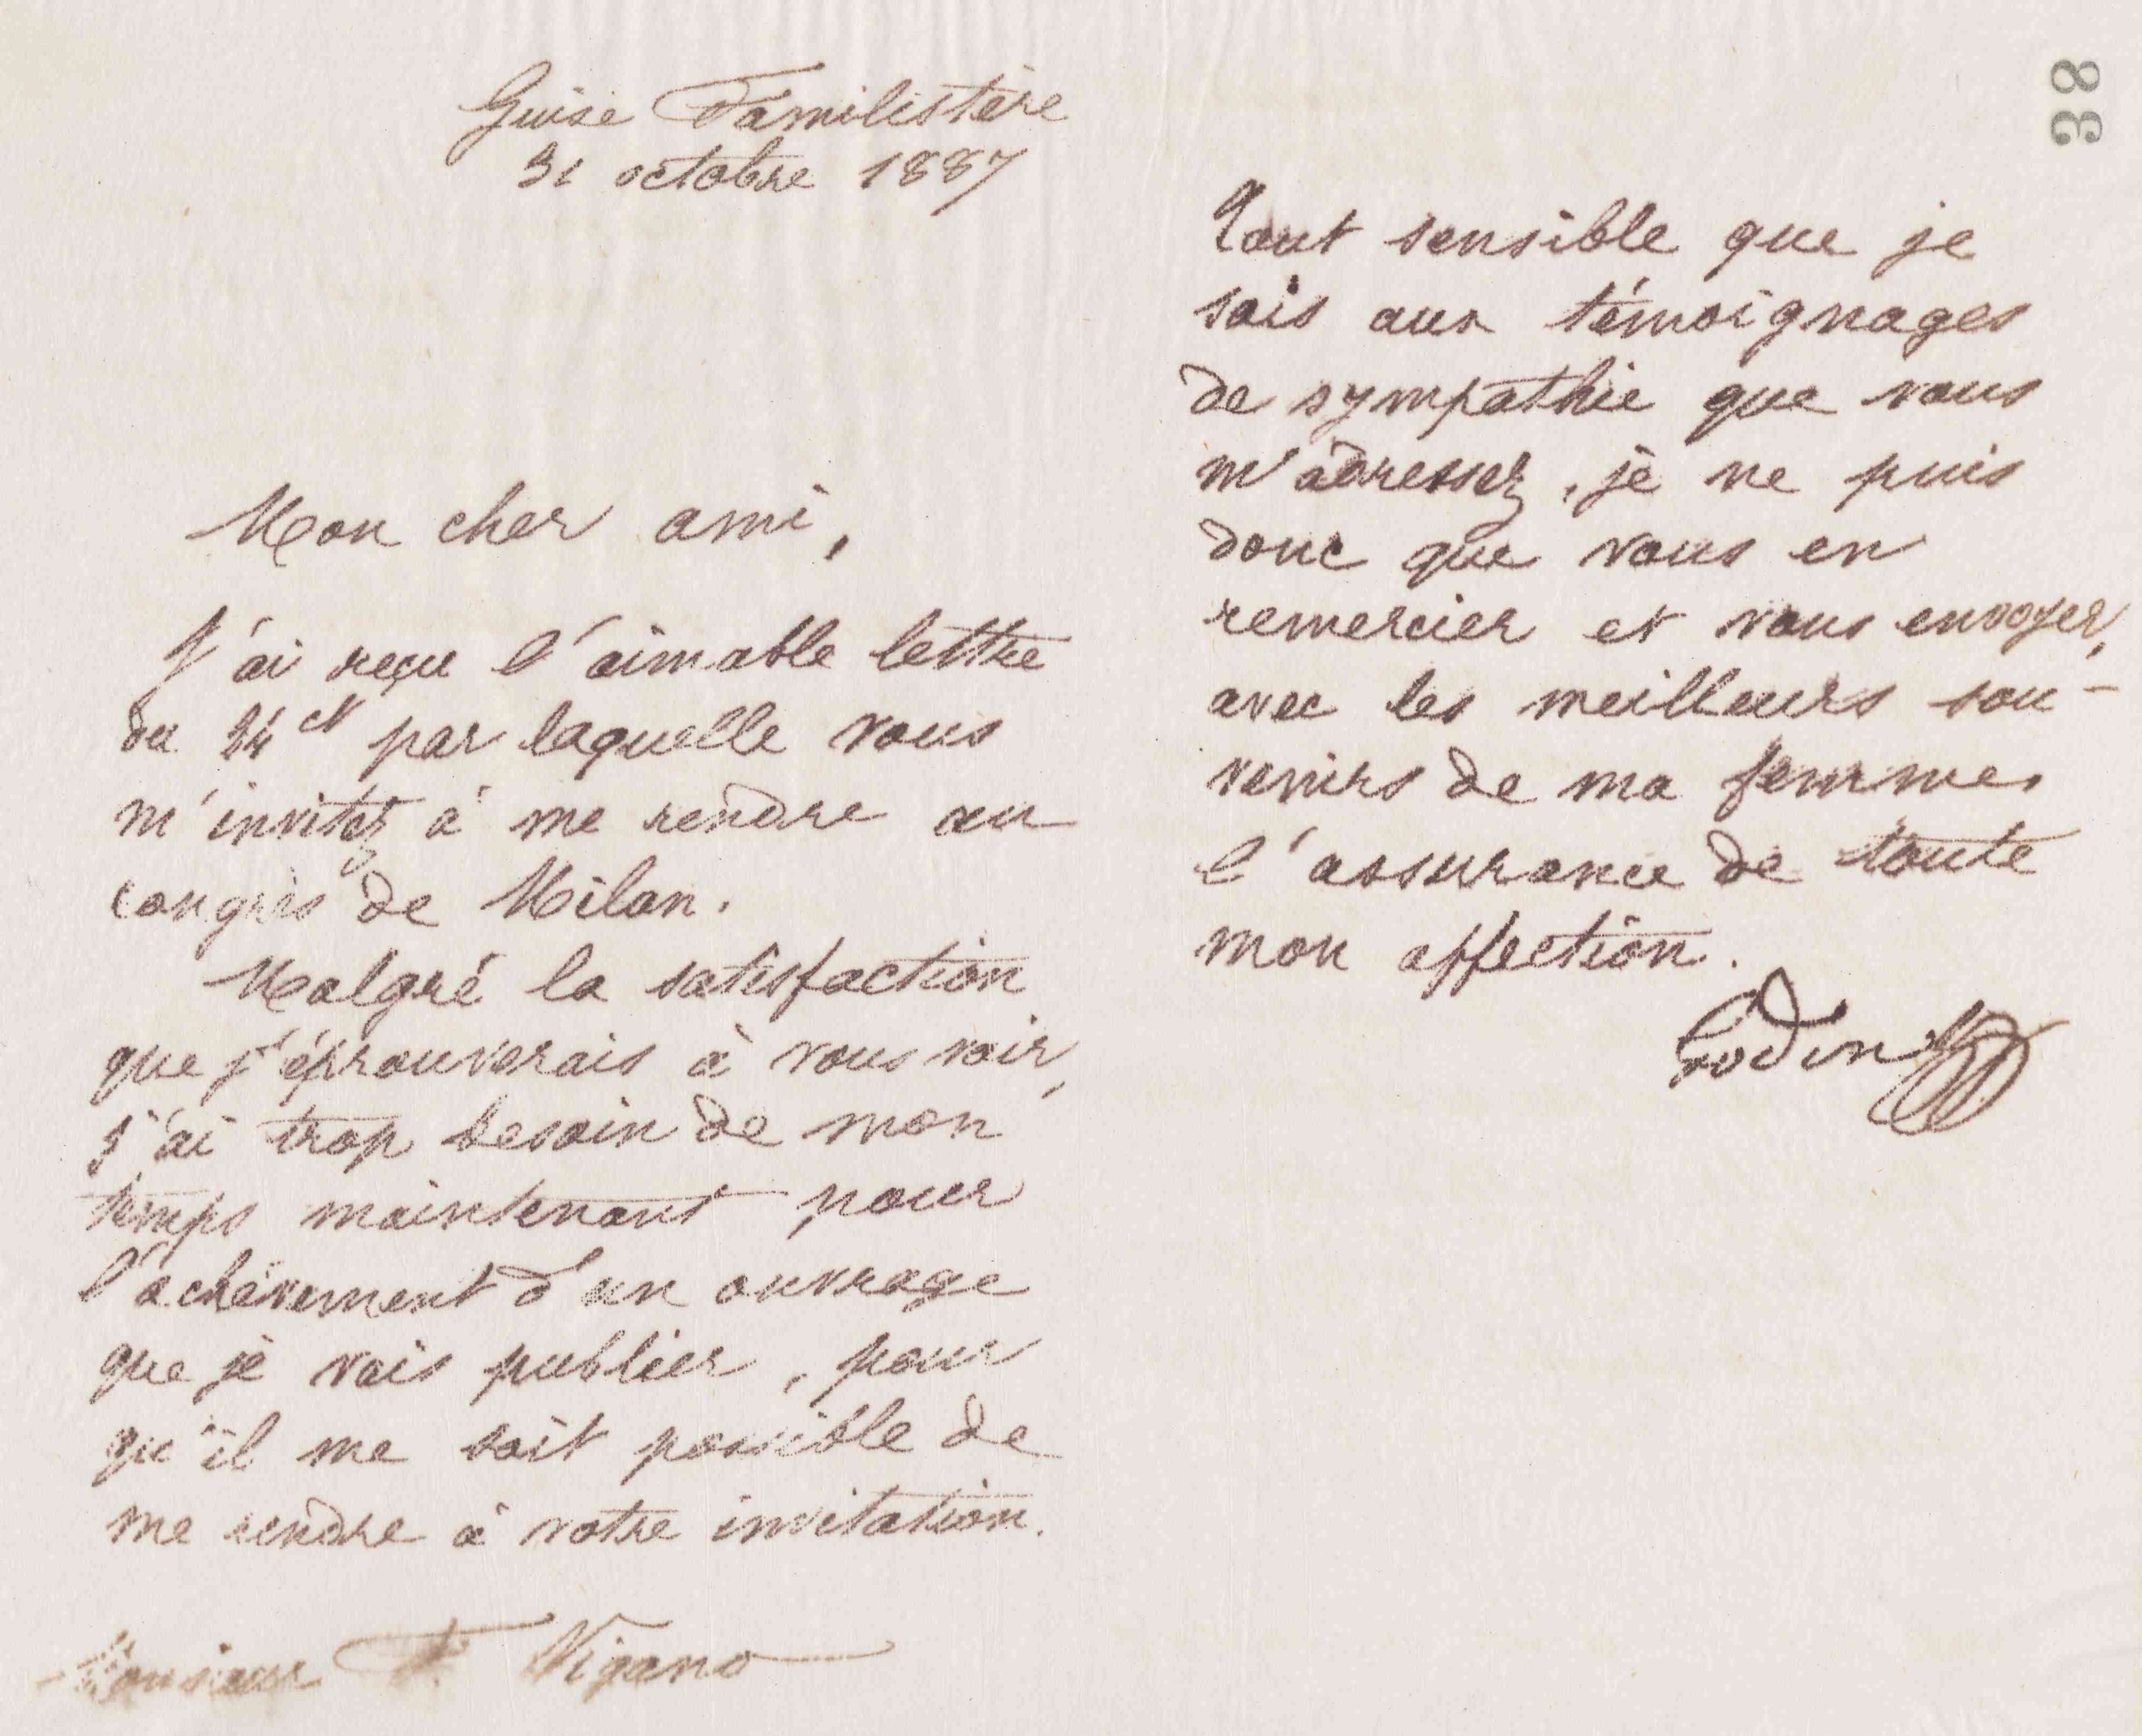 Guise Familistère
31 octobre 1887
Mon cher ami,
J'ai reçu l'aimable lettre
du 24 ct par laquelle vous
m'invitez à me rendre au
congrès de Milan.
Malgré la satisfaction
que j'éprouverais à vous voir,
j'ai trop besoin de mon
temps maintenant pour
l'achèvement d'un ouvrage
que je vais publier, pour
qu'il me soit possible de
me rendre à votre invitation.
Monsieur F. Vigano
38
Tout sensible que je
sois aux témoignages
de sympathie que vous
m'adressez, je ne puis
donc que vous en
remercier et vous envoyer,
avec les meilleurs sou-
venirs de ma femme,
l'assurance de toute
mon affection.
Godin